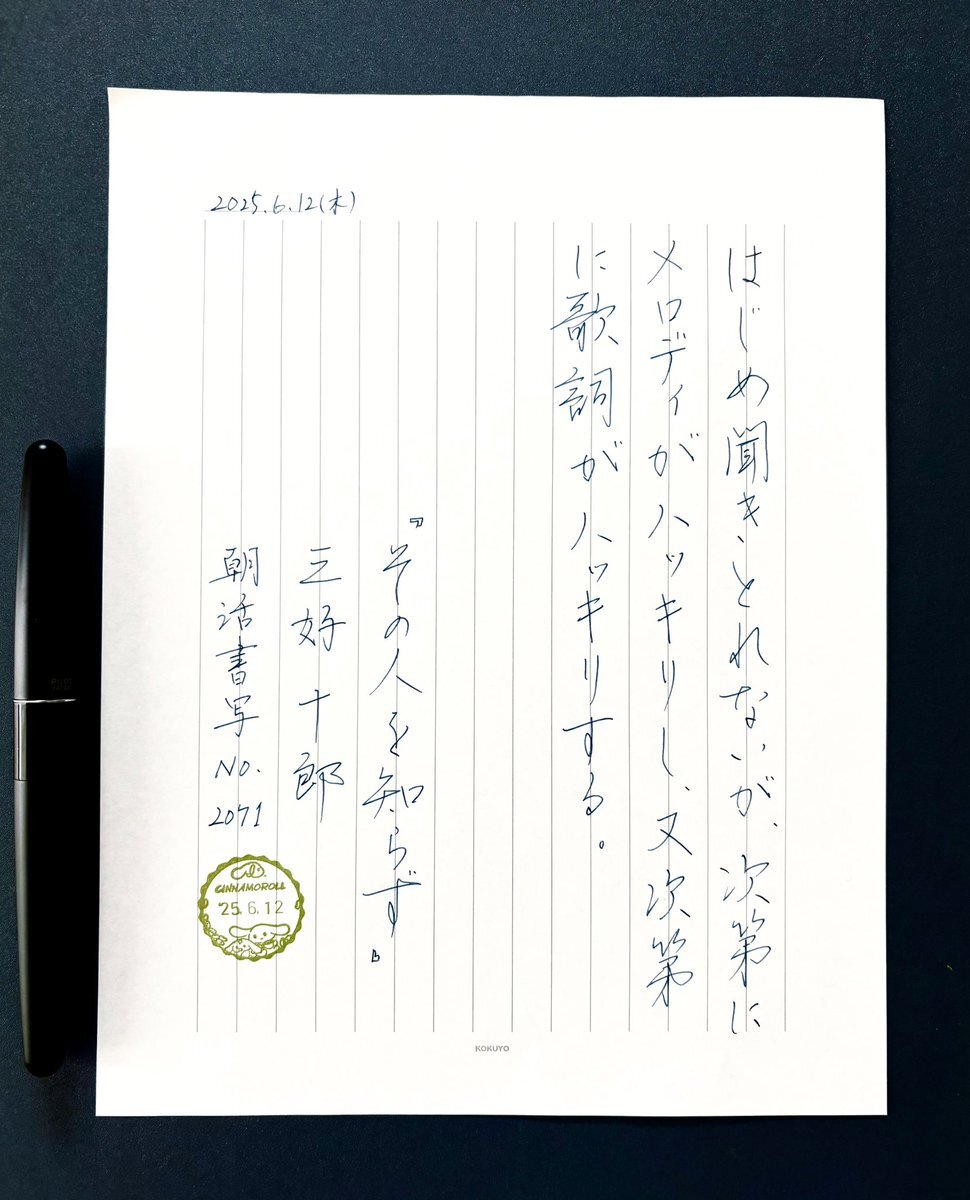 2025.6.12(木)
はじめ聞きとれないが、次第に
メロディがハッキリし、又次第
に歌詞がハッキリする。
『その人を知らず』
三好十郎
朝活書写No.2071
CINNAMOROLL
25.6.12
KOKUYO